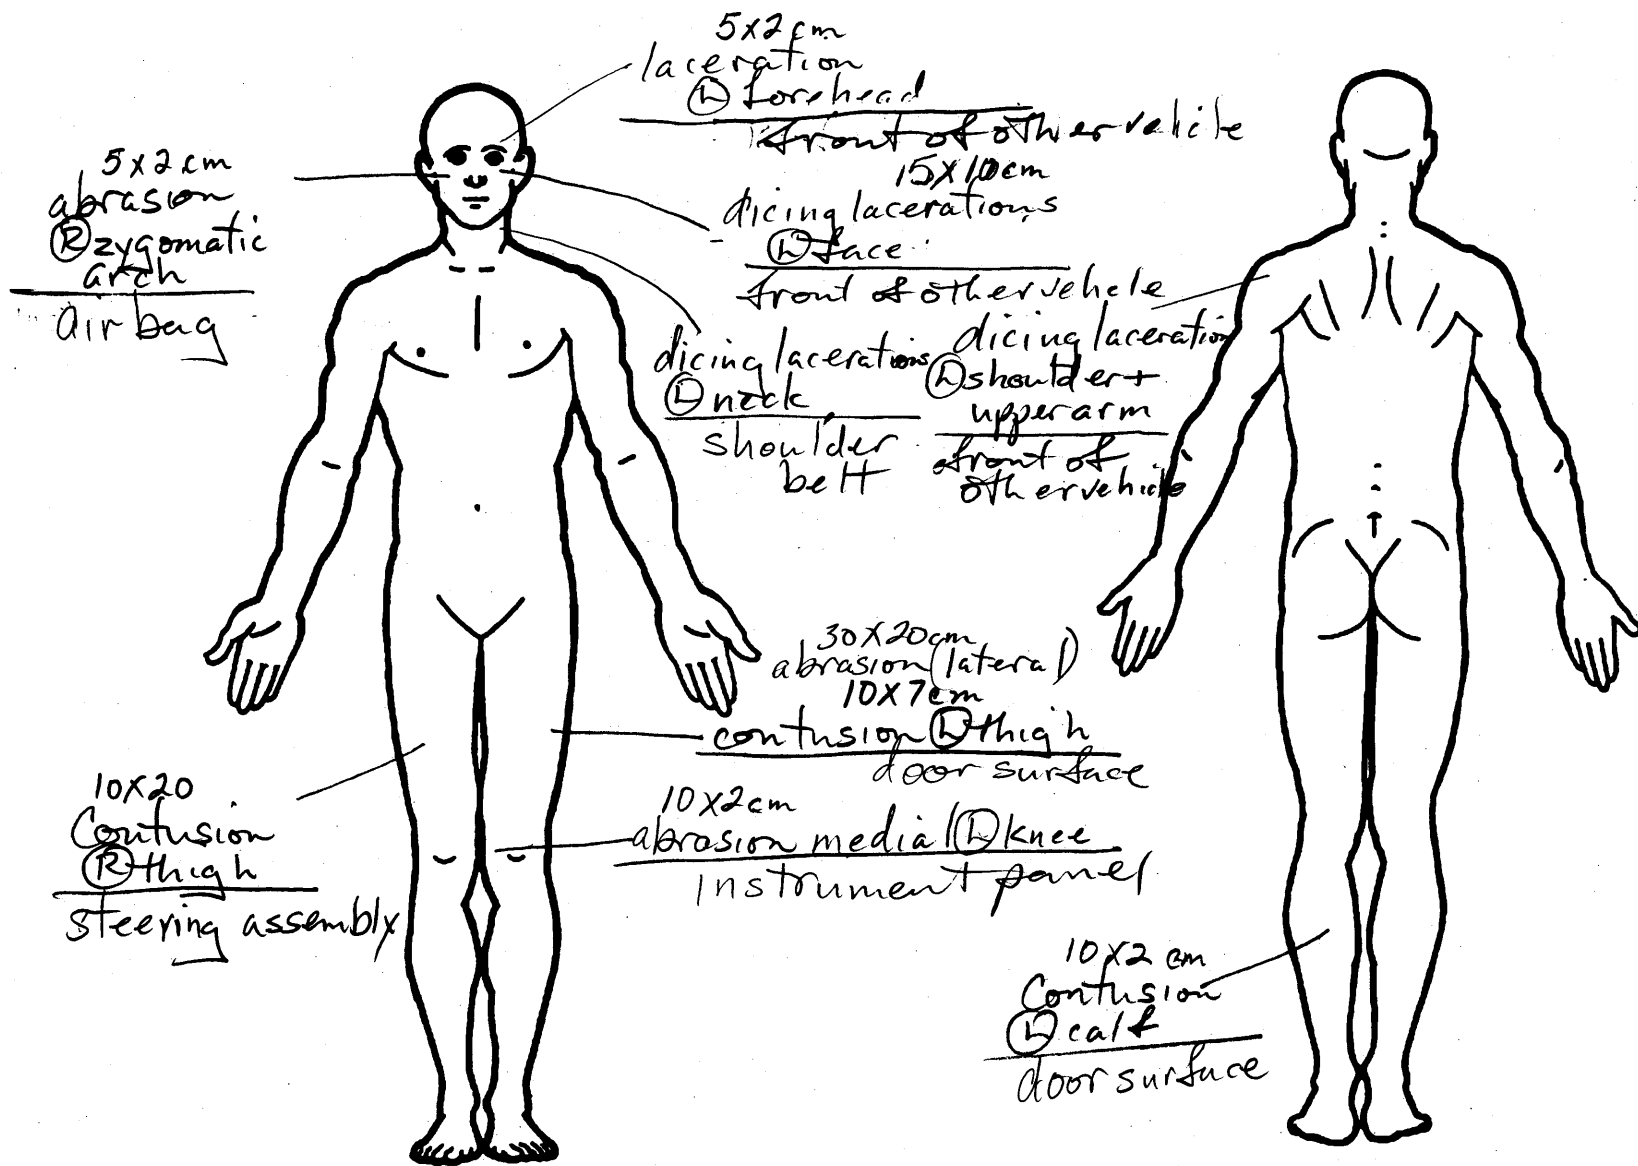 5x2cm
laceration
Ⓛ forehead
front of other vehicle
5x2cm
abrasion
Ⓡ zygomatic
arch
airbag
15x10cm
dicing lacerations
Ⓛ face
front of other vehicle
dicing lacerations
Ⓛ neck
shoulder
belt
dicing laceration
Ⓛ shoulder +
upper arm
front of
other vehicle
30x20cm
abrasion (lateral)
10x7cm
contusion Ⓛ thigh
door surface
10x20
Contusion
Ⓡ thigh
steering assembly
10x2cm
abrasion medial Ⓛ knee
instrument panel
10x2 cm
Contusion
Ⓛ calf
door surface